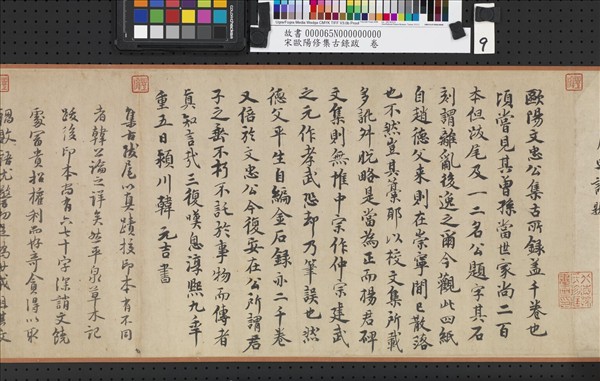 故書 000065N000000000
宋歐陽修集古錄跋 卷
9
歐陽文忠公集古所錄蓋千卷也
頃嘗見其曾孫當世家尚二百
本但跋尾及一二名公題字其石
刻謂離亂後逸之爾今觀此四紙
自趙德父來則在崇寧間已散落
也不然豈其藁耶以校文集所載
多訛舛脫略是當為正而楊君碑
文集則無惟中宗作仲宗建武
之元作孝武恐却乃筆誤也然
德父平生自編金石錄亦二千卷
又倍於文忠公今復安在公所謂君
子之垂不朽不託於事物而傳者
真知言哉三復嘆息淳熙九年
重五日潁川韓元吉書
集古跋尾以真蹟校印本有不同
者韓公論之詳矣然平泉草木記
跋後印本尚有六七十字深誚文饒
處富貴招權利而好奇貪得以取